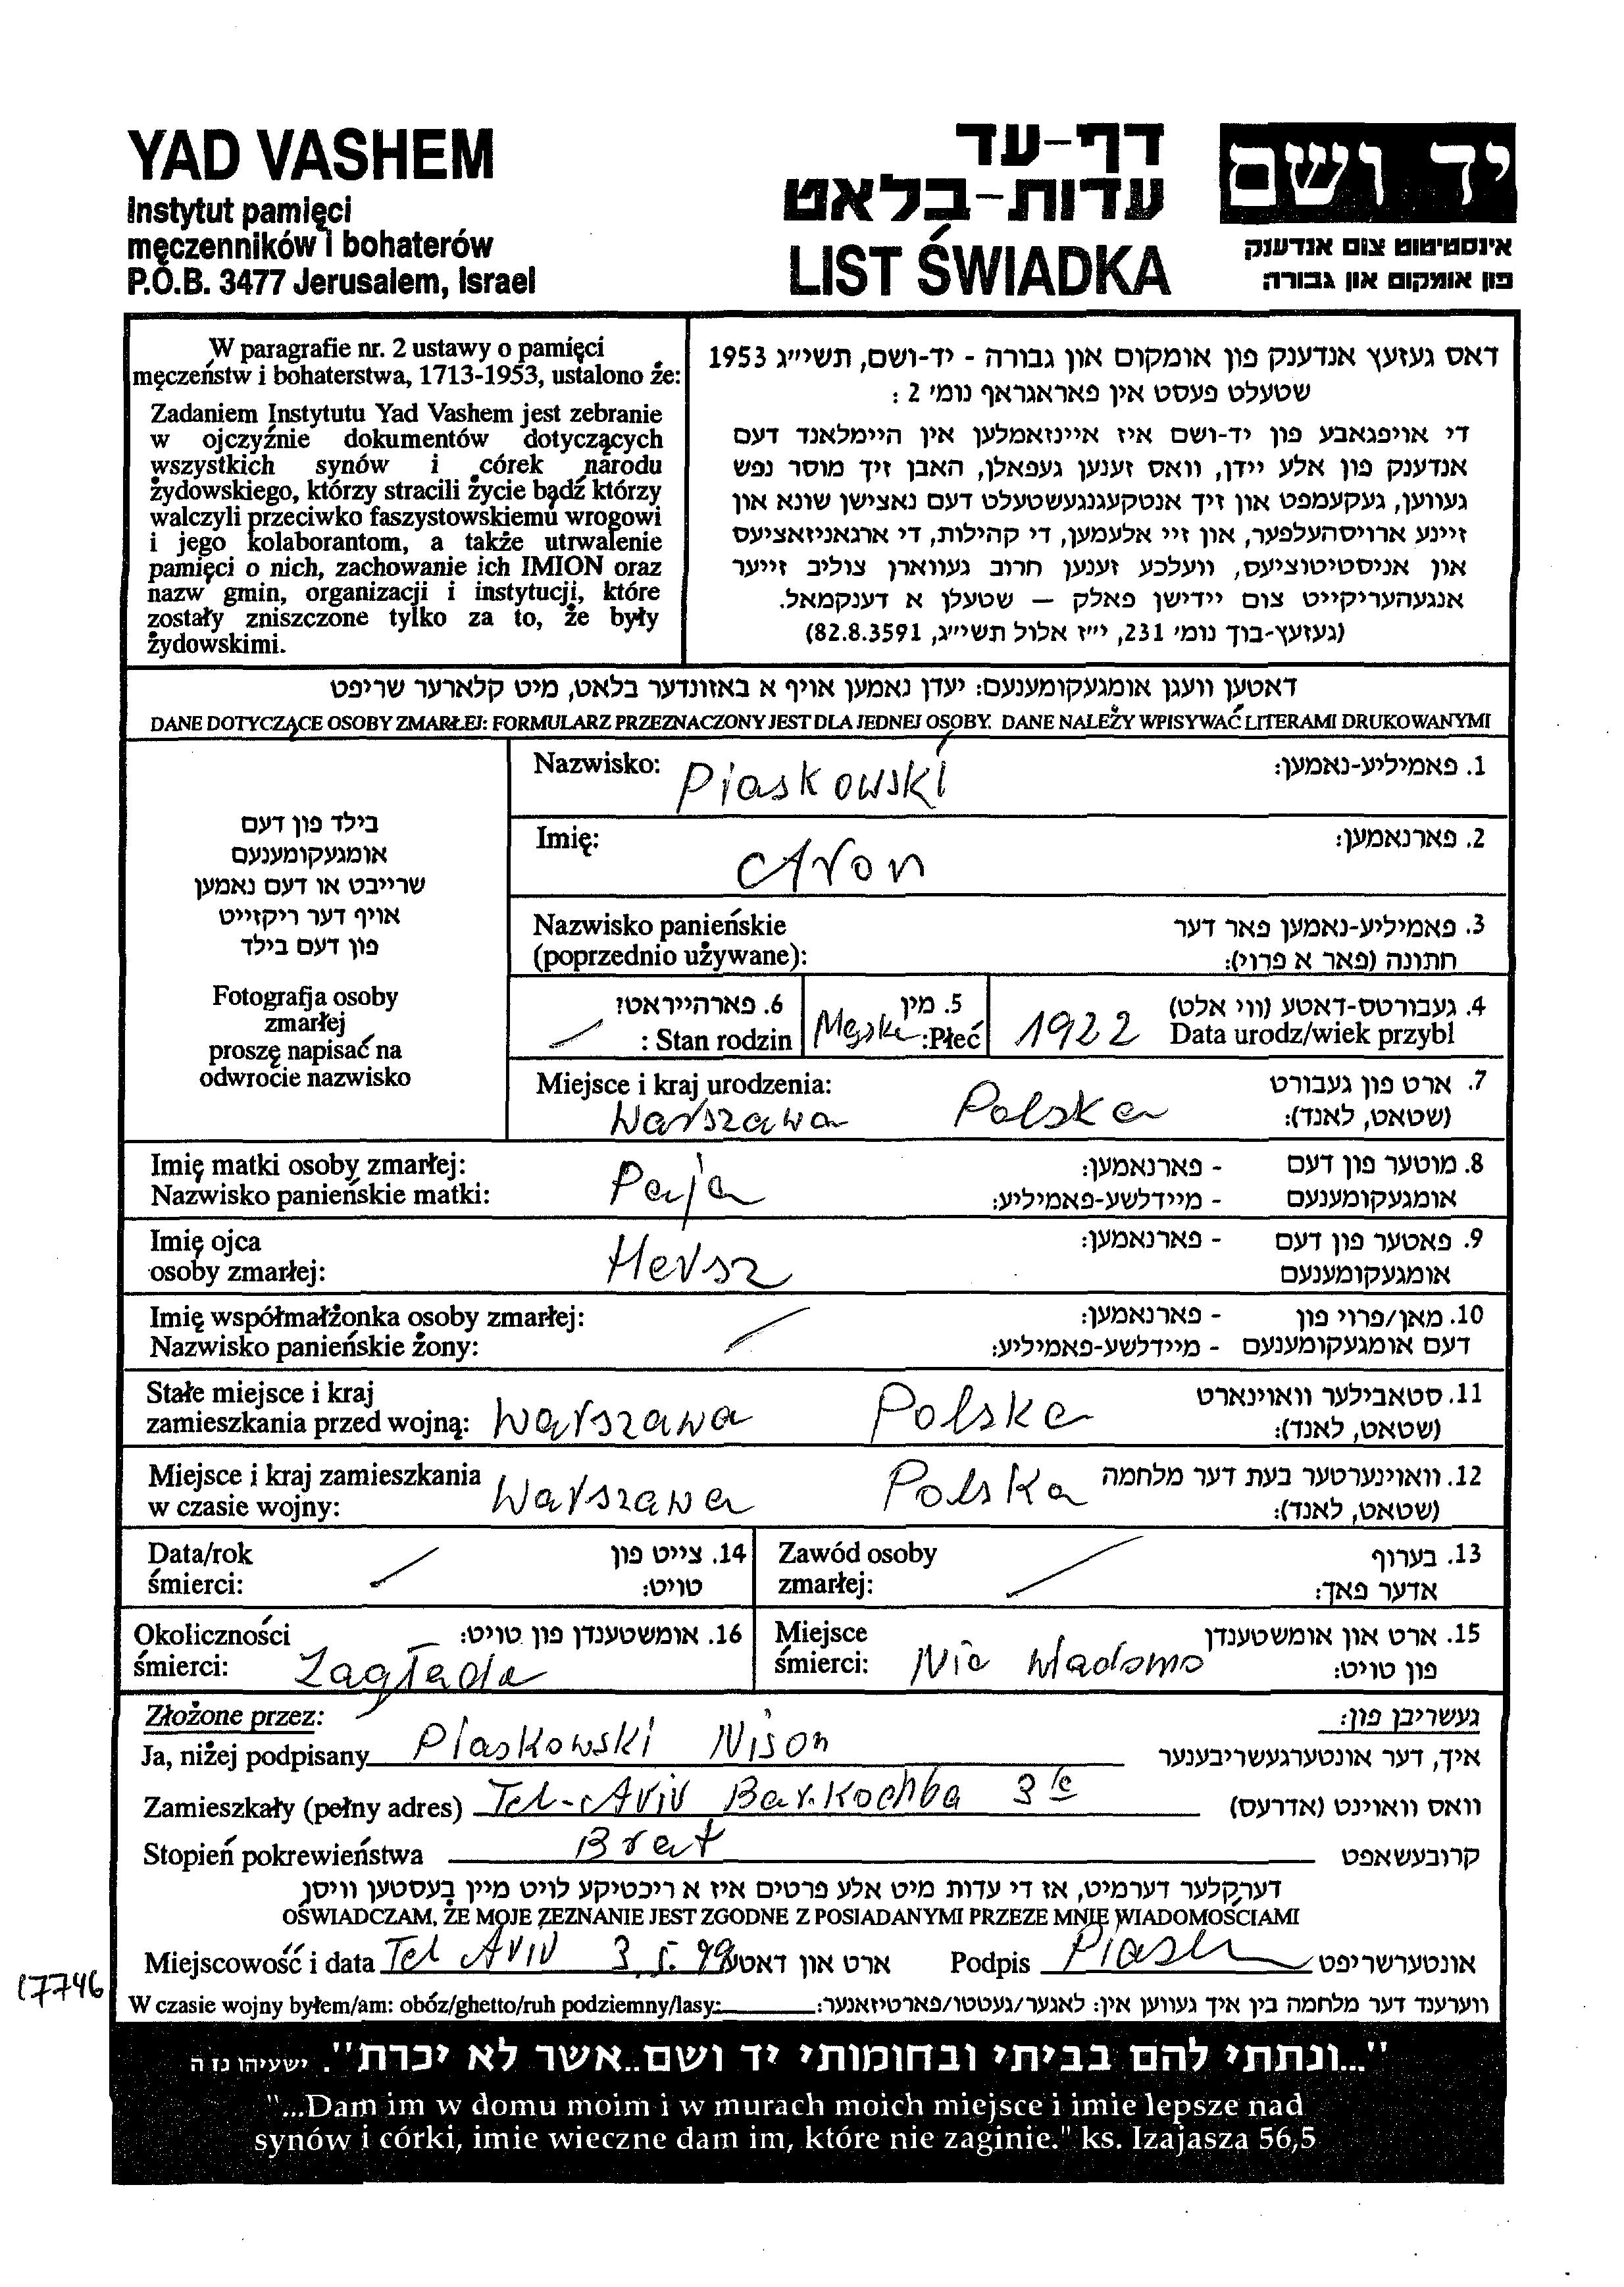 YAD VASHEM
Instytut pamięci
męczenników i bohaterów
P.O.B. 3477 Jerusalem, Israel
דף-עד
עדות-בלאט
LIST ŚWIADKA
יד ושם
אינסטיטוט צום אנדענק
פון אומקום און גבורה
W paragrafie nr. 2 ustawy o pamięci
męczeństw i bohaterstwa, 1713-1953, ustalono że:
Zadaniem Instytutu Yad Vashem jest zebranie
w ojczyźnie dokumentów dotyczących
wszystkich synów i córek narodu
żydowskiego, którzy stracili życie bądź którzy
walczyli przeciwko faszystowskiemu wrogowi
i jego kolaborantom, a także utrwalenie
pamięci o nich, zachowanie ich IMION oraz
nazw gmin, organizacji i instytucji, które
zostały zniszczone tylko za to, że były
żydowskimi.
דאס געזעץ אנדענק פון אומקום און גבורה - יד-ושם, תשי״ג 1953
שטעלט פעסט אין פאראגראף נומ׳ 2 :
די אויפגאבע פון יד-ושם איז איינזאמלען אין היימלאנד דעם
אנדענק פון אלע יידן, וואס זענען געפאלן, האבן זיך מוסר נפש
געווען, געקעמפט און זיך אנטקעגנגעשטעלט דעם נאצישן שונא און
זיינע ארויסהעלפער, און זיי אלעמען, די קהילות, די ארגאניזאציעס
און אניסטיטוציעס, וועלכע זענען חרוב געווארן צוליב זייער
אנגעהעריקייט צום יידישן פאלק – שטעלן א דענקמאל.
(געזעץ-בוך נומ׳ 231, י״ז אלול תשי״ג, 82.8.3591)
דאטען וועגן אומגעקומענעם: יעדן נאמען אויף א באזונדער בלאט, מיט קלארער שריפט
DANE DOTYCZĄCE OSOBY ZMARŁEJ: FORMULARZ PRZEZNACZONY JEST DLA JEDNEJ OSOBY. DANE NALEŻY WPISYWAĆ LITERAMI DRUKOWANYMI
בילד פון דעם
אומגעקומענעם
שרייבט או דעם נאמען
אויף דער ריקזייט
פון דעם בילד
Fotografja osoby
zmarłej
proszę napisać na
odwrocie nazwisko
Nazwisko: Piaskowski 1. פאמיליע-נאמען:
Imię: Aron 2. פארנאמען:
Nazwisko panieńskie 3. פאמיליע-נאמען פאר דער
(poprzednio używane): חתונה (פאר א פרוי):
6. פארהייראט? 5. מין 4. געבורטס-דאטע (ווי אלט)
: Stan rodzin Męski :Płeć 1922 Data urodz/wiek przybl
Miejsce i kraj urodzenia: 7. ארט פון געבורט
Warszawa Polska (שטאט, לאנד):
Imię matki osoby zmarłej: 8. מוטער פון דעם - פארנאמען:
Nazwisko panieńskie matki: Perja אומגעקומענעם - מיידלשע-פאמיליע:
Imię ojca 9. פאטער פון דעם - פארנאמען:
osoby zmarłej: Hersz אומגעקומענעם
Imię współmałżonka osoby zmarłej: 10. מאן/פרוי פון - פארנאמען:
Nazwisko panieńskie żony: דעם אומגעקומענעם - מיידלשע-פאמיליע:
Stałe miejsce i kraj 11. סטאבילער וואוינארט
zamieszkania przed wojną: Warszawa Polska (שטאט, לאנד):
Miejsce i kraj zamieszkania 12. וואוינערטער בעת דער מלחמה
w czasie wojny: Warszawa Polska (שטאט, לאנד):
Data/rok 14. צייט פון Zawód osoby 13. בערוף
śmierci: טויט: zmarłej: אדער פאך:
Okoliczności 16. אומשטענדן פון טויט: Miejsce 15. ארט און אומשטענדן
śmierci: Zagłada śmierci: Nie wiadomo פון טויט:
Złożone przez: געשריבן פון:
Ja, niżej podpisany Piaskowski Nison איך, דער אונטערגעשריבענער
Zamieszkały (pełny adres) Tel-Aviv Bar.Kochba וואס וואוינט (אדרעס)
Stopień pokrewieństwa Brat קרובעשאפט
דערקלער דערמיט, אז די עדות מיט אלע פרטים איז א ריכטיקע לויט מיין בעסטען וויסן
OŚWIADCZAM, ŻE MOJE ZEZNANIE JEST ZGODNE Z POSIADANYMI PRZEZE MNIE WIADOMOŚCIAMI
Miejscowość i data Tel Aviv 3.5.99 ארט און דאטע Podpis אונטערשריפט
17746
W czasie wojny byłem/am: obóz/ghetto/ruh podziemny/lasy: ווערענד דער מלחמה בין איך געווען אין: לאגער/געטטו/פארטיזאנער:
"...ונתתי להם בביתי ובחומותי יד ושם..אשר לא יכרת". ישעיהו נז ה
"...Dam im w domu moim i w murach moich miejsce i imie lepsze nad
synów i córki, imie wieczne dam im, które nie zaginie." ks. Izajasza 56,5